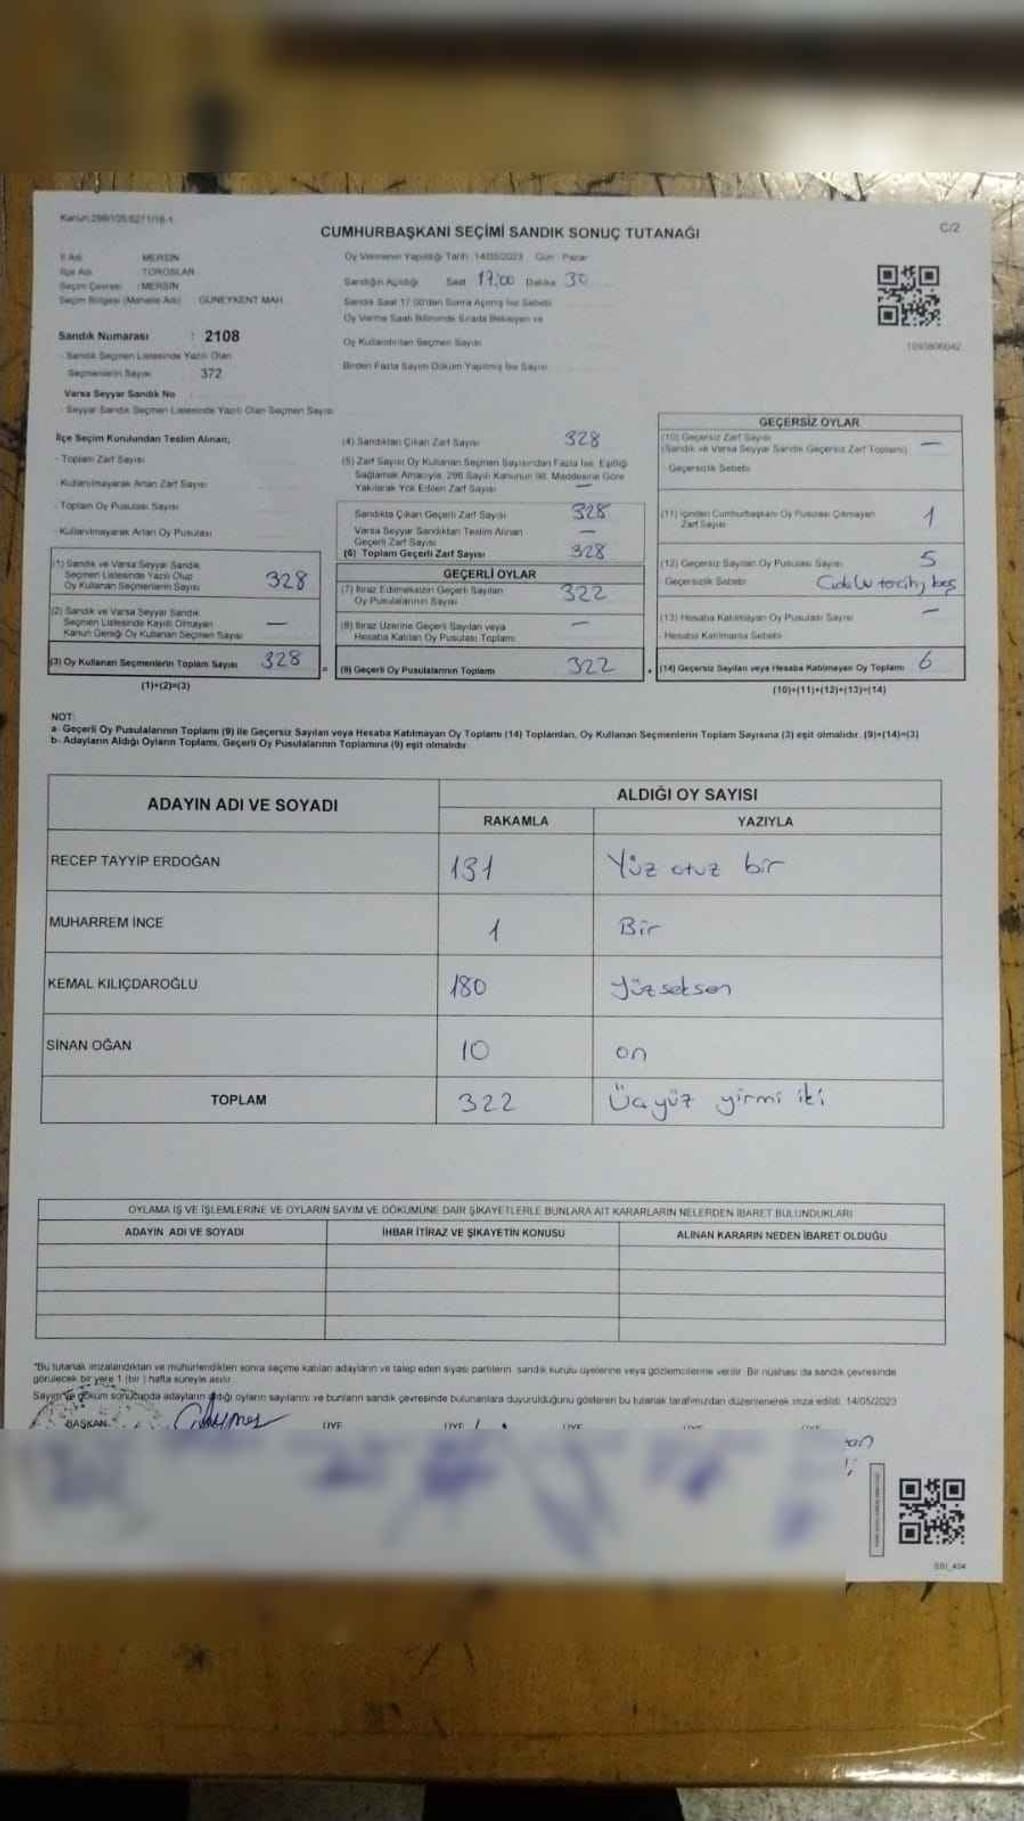 Kanun:298/105/6271/16-1
C/2
CUMHURBAŞKANI SEÇİMİ SANDIK SONUÇ TUTANAĞI
İl Adı MERSİN
İlçe Adı TOROSLAR
Seçim Çevresi : MERSİN
Seçim Bölgesi (Mahalle Adı) GÜNEYKENT MAH
Sandık Numarası : 2108
Sandık Seçmen Listesinde Yazılı Olan
Seçmenlerin Sayısı 372
Varsa Seyyar Sandık No
Seyyar Sandık Seçmen Listesinde Yazılı Olan Seçmen Sayısı
Oy Vermenin Yapıldığı Tarih: 14/05/2023 Gün : Pazar
Sandığın Açıldığı Saat 17:00 Dakika 30
Sandık Saat 17.00'den Sonra Açılmış İse Sebebi
Oy Verme Saati Bitiminde Sırada Bekleyen ve
Oy Kullandırılan Seçmen Sayısı
Birden Fazla Sayım Döküm Yapılmış İse Sayısı
1095806042
İlçe Seçim Kurulundan Teslim Alınan;
- Toplam Zarf Sayısı
- Kullanılmayarak Artan Zarf Sayısı
- Toplam Oy Pusulası Sayısı
- Kullanılmayarak Artan Oy Pusulası
(1) Sandık ve Varsa Seyyar Sandık
Seçmen Listesinde Yazılı Olup
Oy Kullanan Seçmenlerin Sayısı 328
(2) Sandık ve Varsa Seyyar Sandık
Seçmen Listesinde Kayıtlı Olmayan
Kanun Gereği Oy Kullanan Seçmen Sayısı —
(3) Oy Kullanan Seçmenlerin Toplam Sayısı 328
(1)+(2)=(3)
(4) Sandıktan Çıkan Zarf Sayısı 328
(5) Zarf Sayısı Oy Kullanan Seçmen Sayısından Fazla İse, Eşitliği
Sağlamak Amacıyla, 298 Sayılı Kanunun 98. Maddesine Göre
Yakılarak Yok Edilen Zarf Sayısı —
Sandıkta Çıkan Geçerli Zarf Sayısı 328
Varsa Seyyar Sandıktan Teslim Alınan
Geçerli Zarf Sayısı —
(6) Toplam Geçerli Zarf Sayısı 328
GEÇERLİ OYLAR
(7) İtiraz Edilmeksizin Geçerli Sayılan
Oy Pusulalarının Sayısı 322
(8) İtiraz Üzerine Geçerli Sayılan veya
Hesaba Katılan Oy Pusulası Toplamı —
(9) Geçerli Oy Pusulalarının Toplamı 322
GEÇERSİZ OYLAR
(10) Geçersiz Zarf Sayısı
(Sandık ve Varsa Seyyar Sandık Geçersiz Zarf Toplamı) —
Geçersizlik Sebebi
(11) İçinden Cumhurbaşkanı Oy Pusulası Çıkmayan
Zarf Sayısı 1
(12) Geçersiz Sayılan Oy Pusulası Sayısı 5
Geçersizlik Sebebi Çoklu tercih, boş
(13) Hesaba Katılmayan Oy Pusulası Sayısı —
Hesaba Katılmama Sebebi
(14) Geçersiz Sayılan veya Hesaba Katılmayan Oy Toplamı 6
(10)+(11)+(12)+(13)=(14)
NOT:
a- Geçerli Oy Pusulalarının Toplamı (9) ile Geçersiz Sayılan veya Hesaba Katılmayan Oy Toplamı (14) Toplamları, Oy Kullanan Seçmenlerin Toplam Sayısına (3) eşit olmalıdır. (9)+(14)=(3)
b- Adayların Aldığı Oyların Toplamı, Geçerli Oy Pusulalarının Toplamına (9) eşit olmalıdır
ADAYIN ADI VE SOYADI ALDIĞI OY SAYISI
RAKAMLA YAZIYLA
RECEP TAYYİP ERDOĞAN 131 Yüz otuz bir
MUHARREM İNCE 1 Bir
KEMAL KILIÇDAROĞLU 180 Yüzseksen
SİNAN OĞAN 10 on
TOPLAM 322 Üçyüz yirmi iki
OYLAMA İŞ VE İŞLEMLERİNE VE OYLARIN SAYIM VE DÖKÜMÜNE DAİR ŞİKAYETLERLE BUNLARA AİT KARARLARIN NELERDEN İBARET BULUNDUKLARI
ADAYIN ADI VE SOYADI İHBAR İTİRAZ VE ŞİKAYETİN KONUSU ALINAN KARARIN NEDEN İBARET OLDUĞU
*Bu tutanak imzalandıktan ve mühürlendikten sonra seçime katılan adayların ve talep eden siyasi partilerin, sandık kurulu üyelerine veya gözlemcilerine verilir. Bir nüshası da sandık çevresinde
görülecek bir yere 1 (bir) hafta süreyle asılır.
Sayım ve döküm sonucunda adayların aldığı oyların sayılarını ve bunların sandık çevresinde bulunanlara duyurulduğunu gösteren bu tutanak tarafımızdan düzenlenerek imza edildi. 14/05/2023
BAŞKAN ÜYE ÜYE ÜYE ÜYE ÜYE